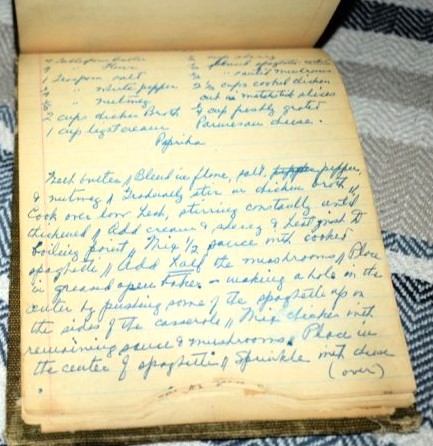 4 Tablespoons butter
4 " flour
1 Teaspoon salt
" white pepper
" nutmeg
2 cups chicken Broth
1 cup light cream
cup sherry
spaghetti
" sauted mushrooms
cups cooked chicken
cut in matchstick slices
cup freshly grated
Parmesan cheese.
Paprika
Melt butter // Blend in flour, salt, pepper,
& nutmeg // Gradually stir in chicken broth //
Cook over low heat, stirring constantly until
thickened // Add cream & sherry & heat just to
boiling point // Mix 1/2 sauce with cooked
spaghetti // Add half the mushrooms // Place
in greased open baker - making a hole in the
center by pushing some of the spaghetti up on
the sides of the casserole // Mix chicken with
remaining sauce & mushrooms. Place in
the center of spaghetti // Sprinkle with cheese
(over)